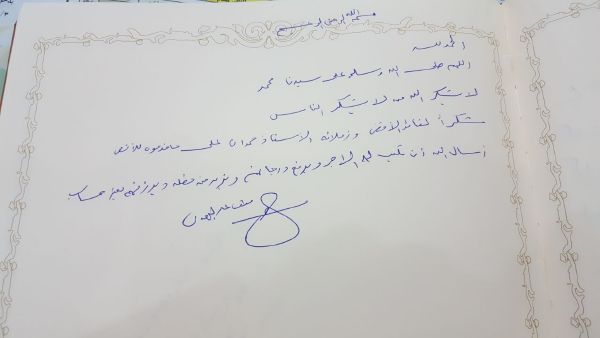 بسم الله الرحمن الرحيم
الحمد لله
اللهم صلى الله وسلم على سيدنا محمد
لا يشكر الله من لا يشكر الناس
شكراً وزملائه الاستاذ حمدان على ما قدموه
أسال الله أن يكتب لهم الاجر ويرفع درجاتهم ويزيدهم من فضله ويرزقهم بغير حساب